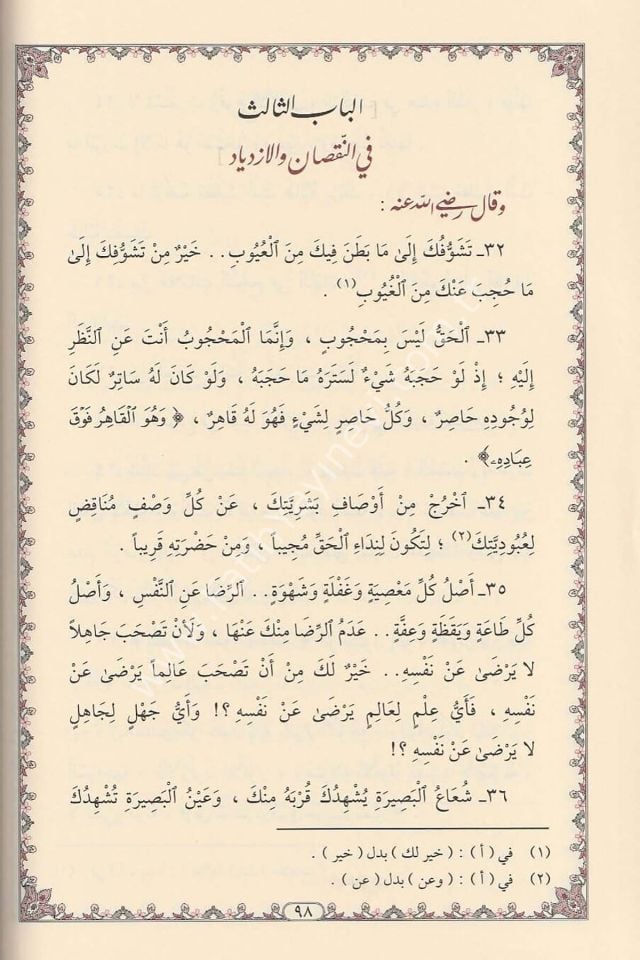 الباب الثالث
في النقصان والازدياد
وقال رضي الله عنه :
٣٢ـ تَشَوُّفُكَ إِلَىٰ مَا بَطَنَ فِيكَ مِنَ ٱلْعُيُوبِ.. خَيْرٌ مِنْ تَشَوُّفِكَ إِلَىٰ
مَا حُجِبَ عَنْكَ مِنَ ٱلْغُيُوبِ(١) .
٣٣ـ ٱلْحَقُّ لَيْسَ بِمَحْجُوبٍ ، وَإِنَّمَا ٱلْمَحْجُوبُ أَنْتَ عَنِ ٱلنَّظَرِ
إِلَيْهِ ؛ إِذْ لَوْ حَجَبَهُ شَيْءٌ لَسَتَرَهُ مَا حَجَبَهُ ، وَلَوْ كَانَ لَهُ سَاتِرٌ لَكَانَ
لِوُجُودِهِ حَاصِرٌ ، وَكُلُّ حَاصِرٍ لِشَيْءٍ فَهُوَ لَهُ قَاهِرٌ ، ﴿ وَهُوَ ٱلْقَاهِرُ فَوْقَ
عِبَادِهِۦ﴾ .
٣٤ـ ٱخْرُجْ مِنْ أَوْصَافِ بَشَرِيَّتِكَ ، عَنْ كُلِّ وَصْفٍ مُنَاقِضٍ
لِعُبُودِيَّتِكَ(٢) ؛ لِتَكُونَ لِنِدَاءِ ٱلْحَقِّ مُجِيباً ، وَمِنْ حَضْرَتِهِ قَرِيباً .
٣٥ـ أَصْلُ كُلِّ مَعْصِيَةٍ وَغَفْلَةٍ وَشَهْوَةٍ.. ٱلرِّضَا عَنِ ٱلنَّفْسِ ، وَأَصْلُ
كُلِّ طَاعَةٍ وَيَقَظَةٍ وَعِفَّةٍ.. عَدَمُ ٱلرِّضَا مِنْكَ عَنْهَا ، وَلَأَنْ تَصْحَبَ جَاهِلاً
لا يَرْضَىٰ عَنْ نَفْسِهِ.. خَيْرٌ لَكَ مِنْ أَنْ تَصْحَبَ عَالِماً يَرْضَىٰ عَنْ
نَفْسِهِ ، فَأَيُّ عِلْمٍ لِعَالِمٍ يَرْضَىٰ عَنْ نَفْسِهِ ؟! وَأَيُّ جَهْلٍ لِجَاهِلٍ
لا يَرْضَىٰ عَنْ نَفْسِهِ ؟!
٣٦ـ شُعَاعُ ٱلْبَصِيرَةِ يُشْهِدُكَ قُرْبَهُ مِنْكَ ، وَعَيْنُ ٱلْبَصِيرَةِ تُشْهِدُكَ
(١) في ( أ ) : ( خير لك ) بدل ( خير ) .
(٢) في ( أ ) : ( وعن ) بدل ( عن ) .
٩٨